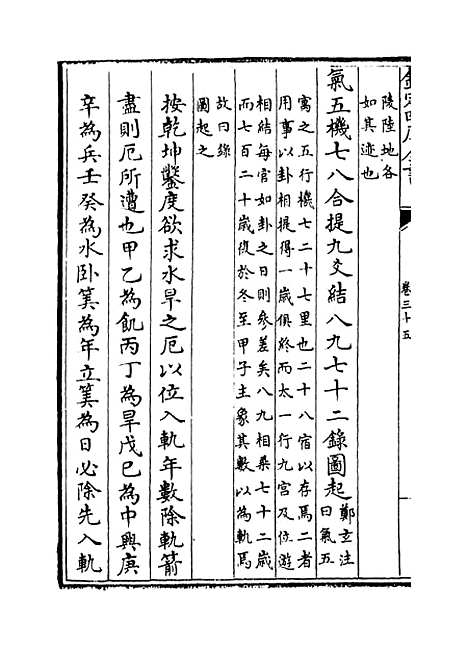 欽定四庫全書
卷三十五
陵陸地各
如其迹也
氣五機七八合提九爻結八九七十二錄圖起
鄭玄注
曰氣五
寓之五行機七二十七里也二十八宿以存焉二者
用事以卦相提得一歲俱終而太一行九宮及位遊
相結每官如卦之日則參差矣八九相乘七十二歲
而七百二十歲復於冬至甲子主象其數以為軌焉
故曰錄
圖起之
按乾坤鑿度欲求水旱之厄以位入軌年數除軌箭
盡則厄所遭也甲乙為飢丙丁為旱戊己為中興庚
辛為兵壬癸為水卧筭為年立筭為日必除先入軌